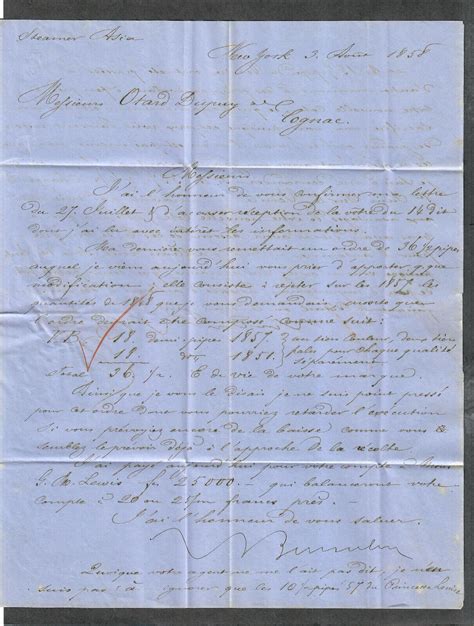 Steamer Asia
New York 3. Août 1858
Messieurs Otard Dupuy & Co
Cognac.
Messieurs
J'ai l'honneur de vous confirmer ma lettre
du 27. Juillet & d'accuser réception de la votre du 14 dit
dont j'ai lu avec intéret les informations.
Ma dernière vous remettait un ordre de 36 1/2 pipes
auquel je viens aujourd'hui vous prier d'apporter
modification, elle consiste à rejeter sur les 1857 les
quantités de que je vous demandais, ensorte que
devrait être composé comme suit:
18 demi-pipes 1857
18 do 1851. pales pour chaque qualité
Total 36 1/2 E de vie de votre marque. séparément
que je vous le disais, je ne suis point pressé
pour cet ordre donc vous pourriez retarder l'execution
Si vous prévoyez encore de la baisse comme vous
semblez le prévoir déjà à l'approche de la récolte.
J'ai payé aujourd'hui pour votre compte à
G. M. Lewis fs 25000.- qui balanceront votre
compte à 20 ou 25 francs près.
J'ai l'honneur de vous saluer.
Quoique votre agent ne me l'ait pas dit, je
suis pas à ignorer que les 10 1/2 pipes 57 du Princess Louise